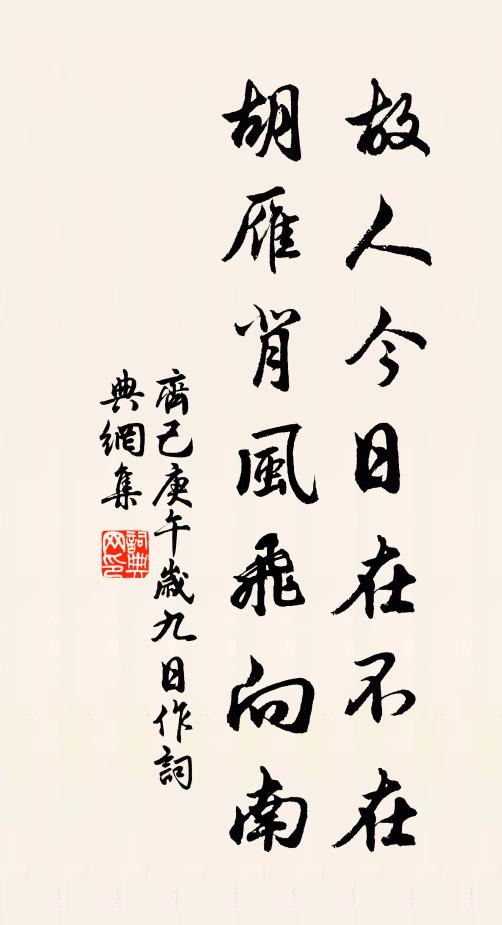 故人今日在不在
胡雁背風飛向南
齊己庚午歲九日作詞
典網集
詞典
网印